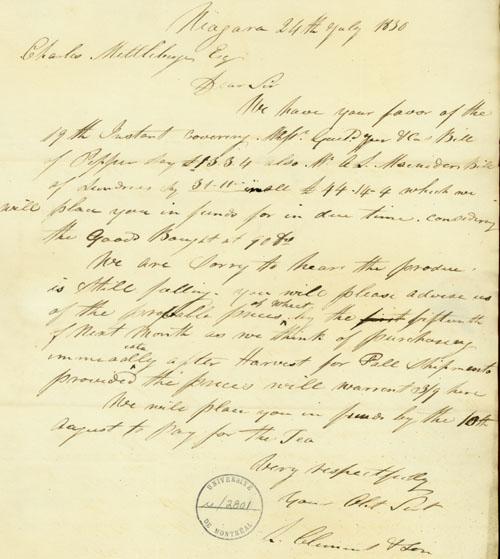 Niagara 24th July 1830
Charles Mittleberger Esq
Dear Sir
We have your favor of the
19th Instant covering Messrs. & Cos Bill
of Pepper Say £13 3 4 also Mr A L. Bill
of Sundries by 31-11- in all £44-14-4 which we
will place you in funds for in due time. considering
the Goods Bought at 90 Ds
We are Sorry to hear the produce
is Still falling you will please advise us
of the probable prices of wheat by the first fifteenth
of Next Month as we think of purchasing
immediately after Harvest for Fall Shipments
provided the prices will warrent 3/9 here
We will place you in funds by the 10th
August to pay for the Tea
Very respectfully
Your Obt Sert
L. Clement & Son
UNIVERSITÉ
/2801
DE MONTRÉAL